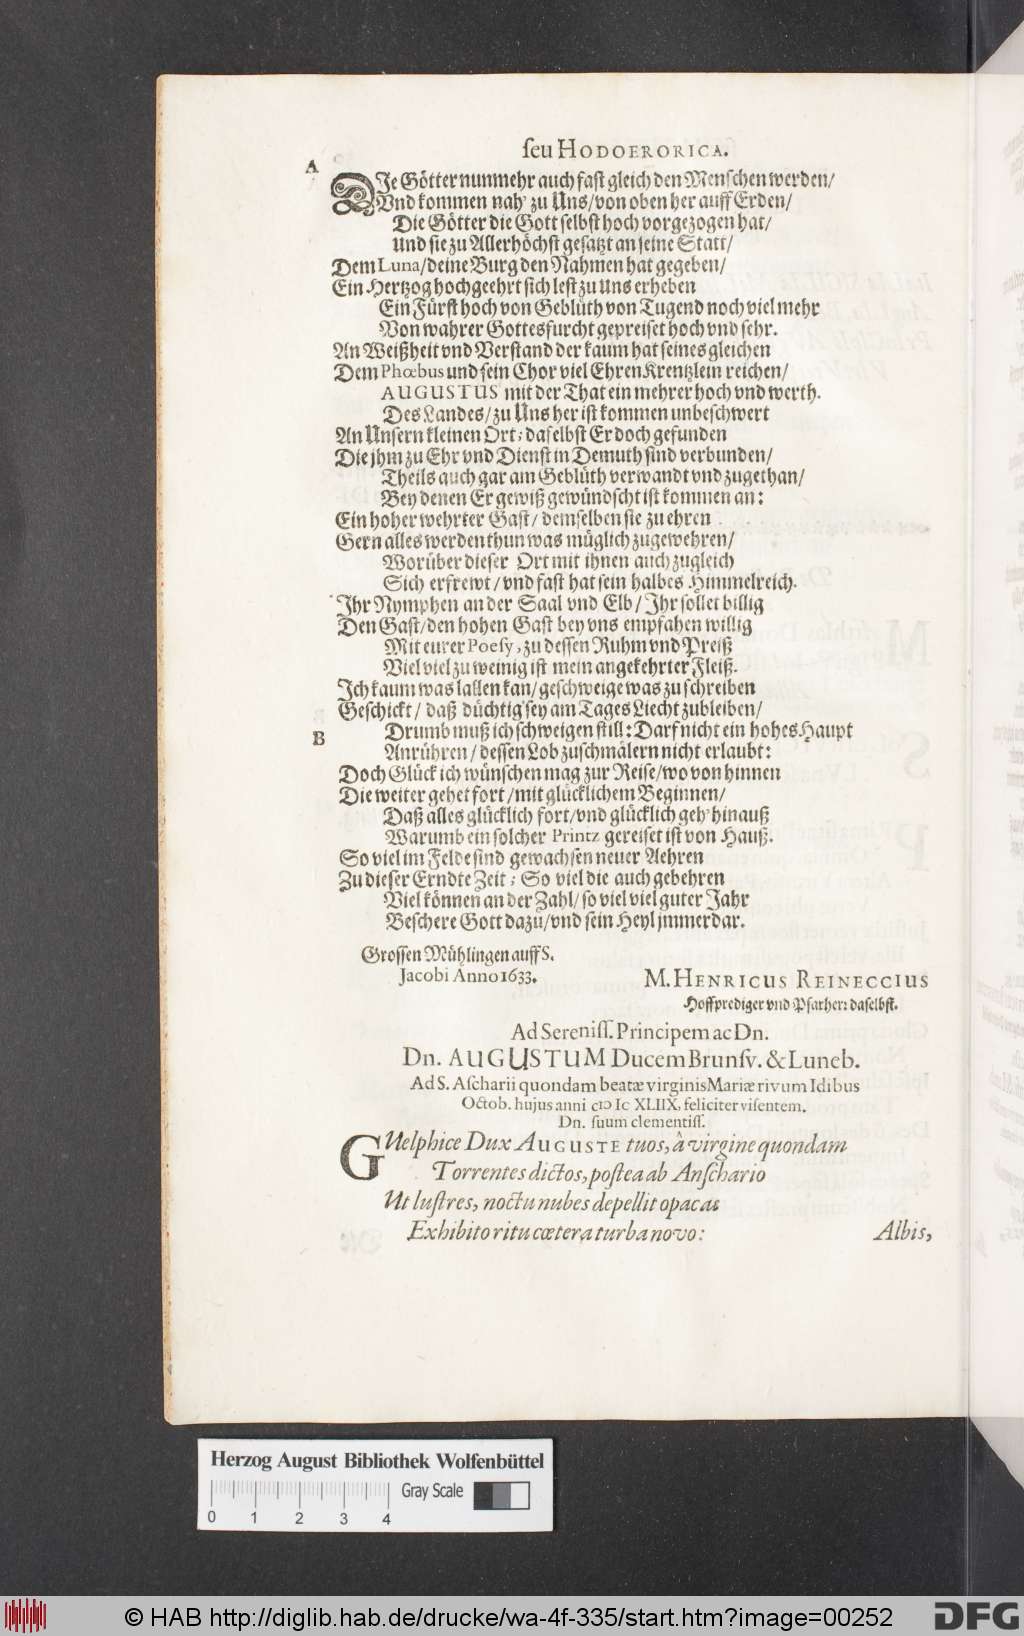 ſeu HODOERORICA.
A
DJe Götter nunmehr auch faſt gleich den Menſchen werden/
Vnd kommen nah' zu Uns/ von oben her auff Erden/
Die Götter die Gott ſelbſt hoch vorgezogen hat/
Und ſie zu Allerhöchſt geſatzt an ſeine Statt/
Dem Luna/ deine Burg den Nahmen hat gegeben/
Ein Hertzog hochgeehrt ſich leſt zu Uns erheben
Ein Fürſt hoch von Geblüth von Tugend noch viel mehr
Von wahrer Gottesfurcht gepreiſet hoch vnd ſehr.
An Weißheit vnd Verſtand der kaum hat ſeines gleichen
Dem Phœbus und ſein Chor viel EhrenKrentzlein reichen/
AUGUSTUS mit der That ein mehrer hoch vnd werth.
Des Landes/ zu Uns her iſt kommen unbeſchwert
An Unſern kleinen Ort; daſelbſt Er doch gefunden
Die jhm zu Ehr vnd Dienſt in Demuth ſind verbunden/
Theils auch gar am Geblüth verwandt vnd zugethan/
Bey denen Er gewiß gewündſcht iſt kommen an:
Ein hoher wehrter Gaſt/ demſelben ſie zu ehren
Gern alles werden thun was müglich zugewehren/
Worüber dieſer Ort mit ihnen auch zugleich
Sich erfrewt/ vnd faſt hat ſein halbes Himmelreich.
Jhr Nymphen an der Saal vnd Elb/ Jhr ſollet billig
Den Gaſt/ den hohen Gaſt bey vns empfahen willig
Mit eurer Poeſy, zu deſſen Ruhm vnd Preiß
Viel viel zu weinig iſt mein angekehrter Fleiß.
Jch kaum was lallen kan/ geſchweige was zu ſchreiben
Geſchickt/ daß düchtig' ſey am Tages Liecht zubleiben/
Drumb muß ich ſchweigen ſtill: Darf nicht ein hohes Haupt
B
Anrühren/ deſſen Lob zuſchmälern nicht erlaubt:
Doch Glück ich wünſchen mag zur Reiſe/ wo von hinnen
Die weiter gehet fort/ mit glücklichem Beginnen/
Daß alles glücklich fort/ vnd glücklich geh' hinauß
Warumb ein ſolcher Printz gereiſet iſt von Hauß.
So viel im Felde ſind gewachſen neuer Aehren
Zu dieſer Erndte Zeit; So viel die auch gebehren
Viel können an der Zahl/ ſo viel viel guter Jahr
Beſchere Gott dazu/ vnd ſein Heyl jmmerdar.
Groſſen Mühlingen auff S.
Jacobi Anno 1633.
M. HENRICUS REINECCIUS
Hoffprediger vnd Pfarher: daſelbſt.
Ad Sereniſſ. Principem ac Dn.
Dn. AUGUSTUM Ducem Brunſv. & Luneb.
Ad S. Aſcharii quondam beatæ virginis Mariæ rivum Idibus
Octob. hujus anni cıɔ Ic XLIIX, feliciter viſentem.
Dn. ſuum clementiſſ.
GUelphice Dux AUGUSTE tuos, â virgine quondam
Torrentes dictos, poſtea ab Anſchario
Ut luſtres, noctu nubes depellit opacas
Exhibito ritu cœtera turba novo:
Albis,
Herzog August Bibliothek Wolfenbüttel
Gray Scale
0 1 2 3 4
© HAB http://diglib.hab.de/drucke/wa-4f-335/start.htm?image=00252
DFG